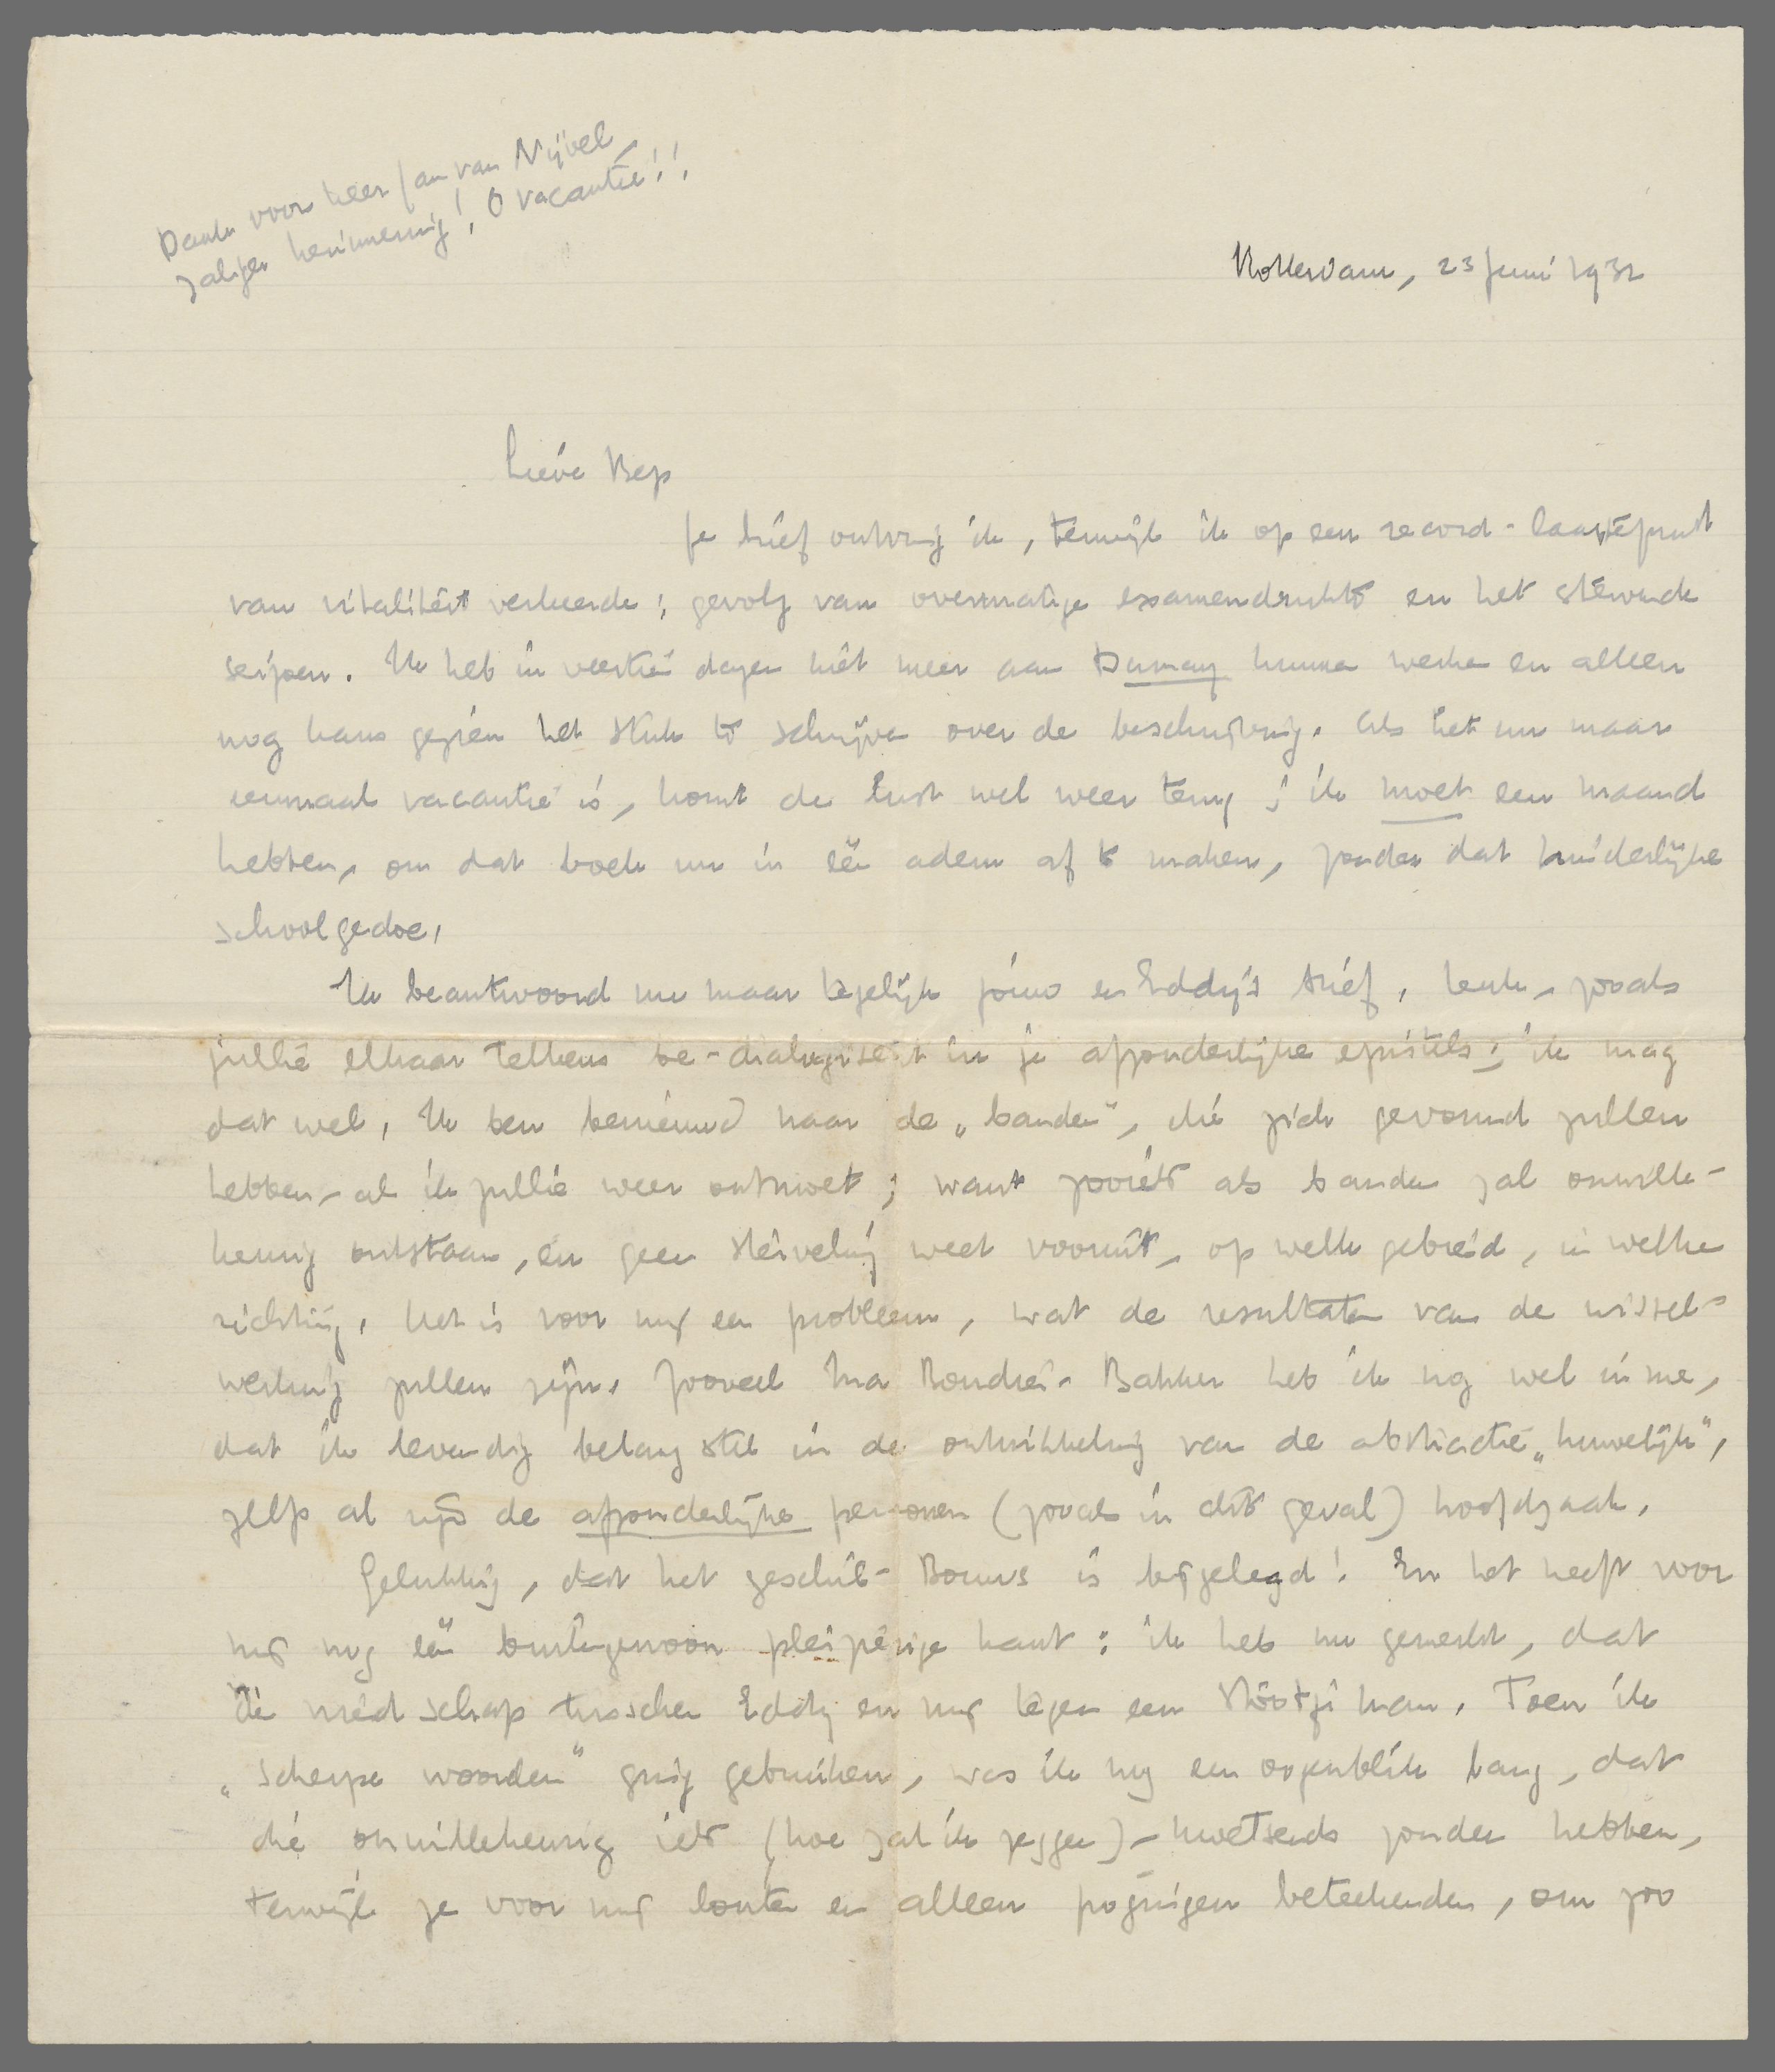 Dank voor heer Jan van Nijvel,
zaliger herinnering! O vacantie!!
Rotterdam, 23 Juni 1932
Lieve Bep
Je brief ontving ik, terwijl ik op een record-laagtepunt
van vitaliteit verkeerde; gevolg van overmatige examendrukte en het stervende
seizoen. Ik heb in veertien dagen niet meer aan Dumay kunnen werken en alleen
nog kans gezien het stuk te schrijven over de beschrijving. Als het nu maar
eenmaal vacantie is, komt de lust wel weer terug; ik moet een maand
hebben, om dat boek nu in één adem af te maken, zonder dat hinderlijke
schoolgedoe.
Ik beantwoord nu maar tegelijk jouw en Eddy's brief. Leuk, zooals
jullie elkaar telkens be-dialogiseert in je afzonderlijke epistels; ik mag
dat wel. Ik ben benieuwd naar de „banden”, die zich gevormd zullen
hebben, als ik jullie weer ontmoet; want zooiets als banden zal onwille-
keurig ontstaan, en geen sterveling weet vooruit, op welk gebied, in welke
richting. Het is voor mij een probleem, wat de resultaten van de wissel-
werking zullen zijn. Zooveel Ina Boudier-Bakker heb ik nog wel in me,
dat ik levendig belang stel in de ontwikkeling van de abstractie „huwelijk”,
zelfs al zijn de afzonderlijke personen (zooals in dit geval) hoofdzaak.
Gelukkig, dat het geschil-Bouws is bijgelegd! En het heeft voor
mij nog één buitengewoon pleizierige kant: ik heb nu gemerkt, dat
de vriendschap tusschen Eddy en mij tegen een stootje kan. Toen ik
„scherpe woorden” ging gebruiken, was ik nog een oogenblik bang, dat
die onwillekeurig iets (hoe zal ik zeggen) - kwetsends zouden hebben,
terwijl ze voor mij louter en alleen pogingen beteekenden, om zoo